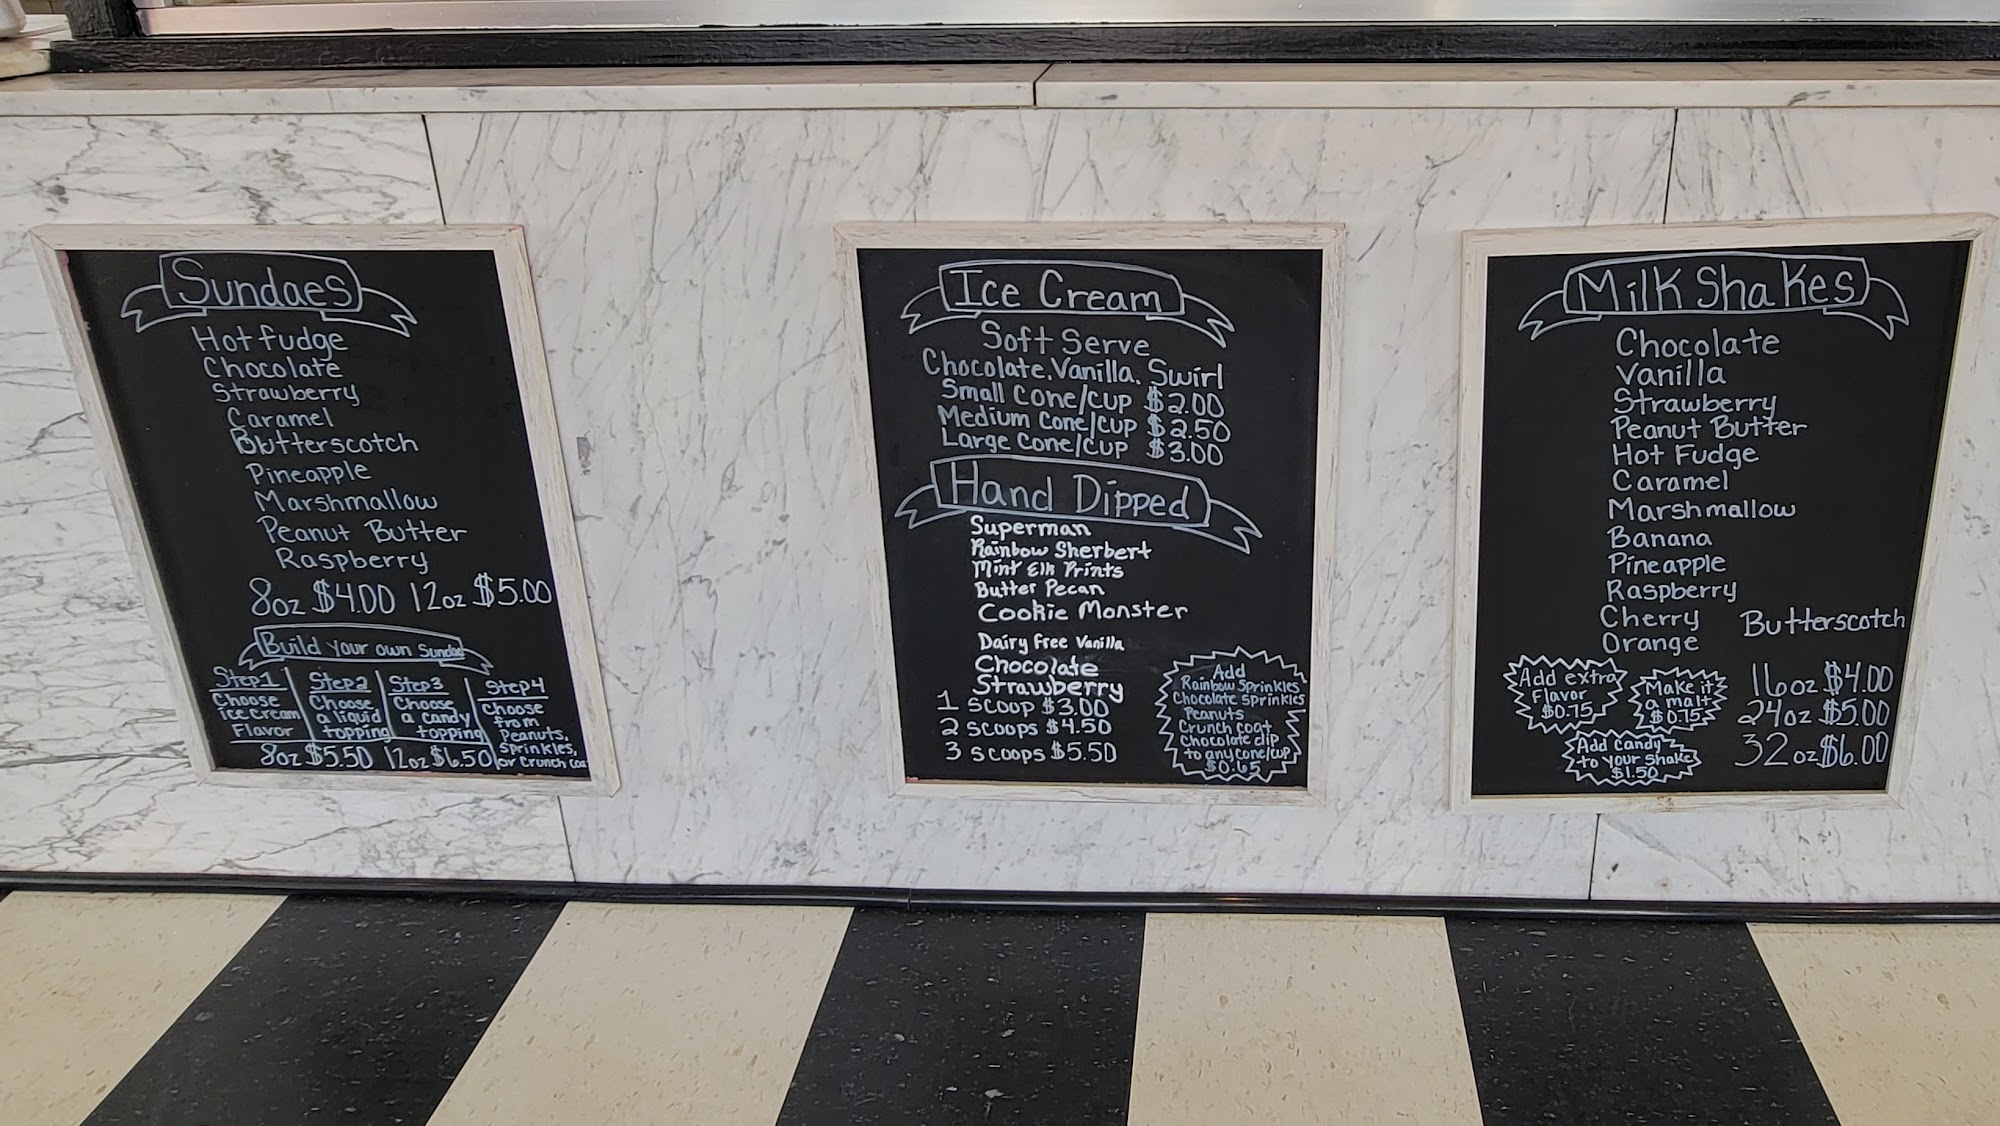 Sundaes
Hot fudge
Chocolate
Strawberry
Caramel
Butterscotch
Pineapple
Marshmallow
Peanut Butter
Raspberry
8oz $4.00 12oz $5.00
Build your own Sundae
Step 1
Choose
ice cream
Flavor
Step 2
Choose
a liquid
topping
Step 3
Choose
a candy
topping
Step 4
Choose
from
Peanuts,
Sprinkles,
or Crunch coa
8oz $5.50 12oz $6.50
Ice Cream
Soft Serve
Chocolate, Vanilla, Swirl
Small Cone/cup $2.00
Medium Cone/cup $2.50
Large Cone/cup $3.00
Hand Dipped
Superman
Rainbow Sherbert
Mint Elk Prints
Butter Pecan
Cookie Monster
Dairy Free Vanilla
Chocolate
Strawberry
1 Scoop $3.00
2 Scoops $4.50
3 Scoops $5.50
Add
Rainbow Sprinkles
Chocolate Sprinkles
Peanuts
Crunch coat
Chocolate dip
to any cone/cup
$0.65
Milk Shakes
Chocolate
Vanilla
Strawberry
Peanut Butter
Hot Fudge
Caramel
Marshmallow
Banana
Pineapple
Raspberry
Cherry
Butterscotch
Orange
Add extra
Flavor
$0.75
Make it
a malt
$0.75
Add Candy
to your shake
$1.50
16oz $4.00
24oz $5.00
32oz $6.00